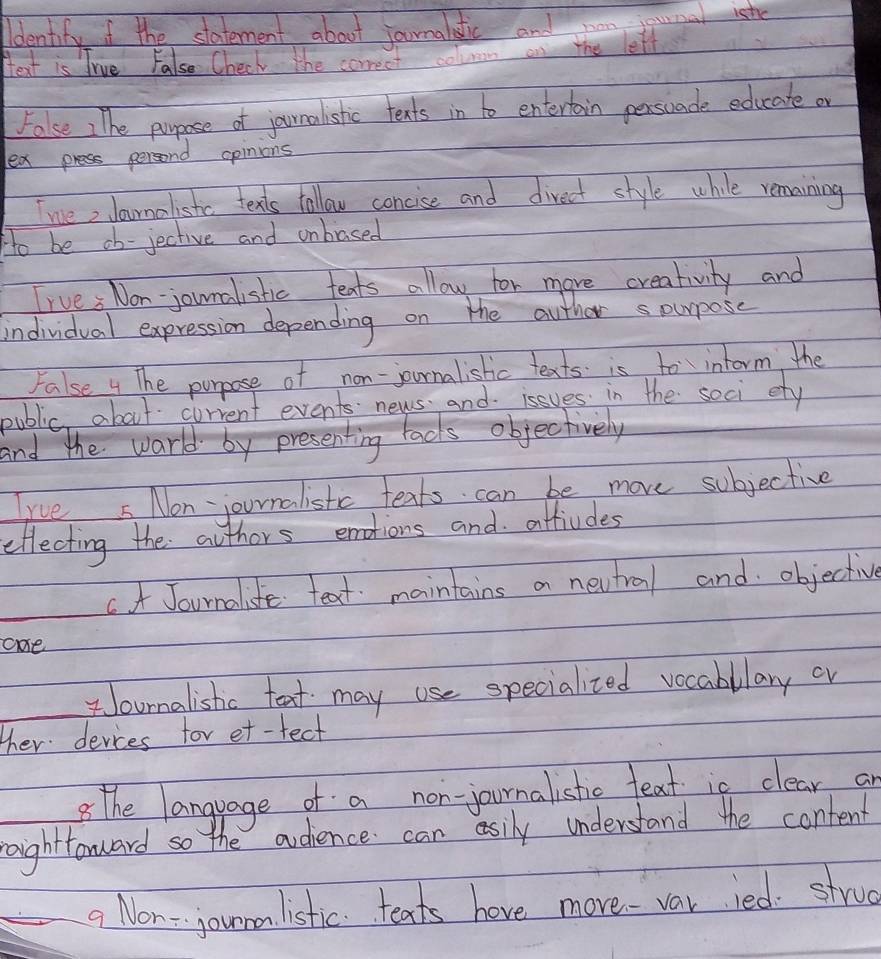 Identify if the statement about journalistic and non-journalistic
text is True False Check the correct column on the left
False 1 The purpose of journalistic texts in to entertain persuade educate or
ex press persond opinions
True 2 Journalistic texts follow concise and direct style while remaining
to be ob-jective and unbiased
True 3 Non-journalistic texts allow for more creativity and
individual expression depending on the author s purpose
False 4 The purpose of non-journalistic texts is to inform the
public about current events news and issues in the soci ety
and the world by presenting facts objectively
True 5 Non-journalistic texts can be more subjective
eflecting the authors emotions and attiudes
6 A Journalistc text maintains a neutral and objective
7 Journalistic text may use specialized vocabulary or
ther devices for ef-fect
8 The language of a non-journalistic text is clear an
raightforward so the audience can easily understand the content
9 Non-journalistic texts have more-var ied struc